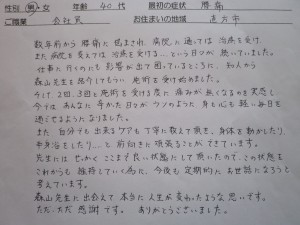 性別 男・女 年齢 40代 最初の症状 腰痛
ご職業 会社員 お住まいの地域 直方市
数年前から腰痛に悩まされ、病院に通っては治療を受け、
また病院を変えては治療を受ける…という日々が続いていました。
仕事に行くのにも影響が出て困っているところに、知人から
森山先生を紹介してもらい、施術を受け始めました。
今では、あんなに辛かった日々がウソのように身も心も軽い毎日を
過ごせるようになりました。
また、自分でも出来るケアも丁寧に教えて頂き、身体を動かしたり、
半身浴をしたり…と前向きに頑張ることができています。
先生にはせっかくここまで良い状態にして頂いたので、この状態を
これからも維持していく為に、今後も定期的にお世話になろうと
考えています。
森山先生に出会えて本当に人生が変わったような思いです。
ただただ感謝です。ありがとうございました。